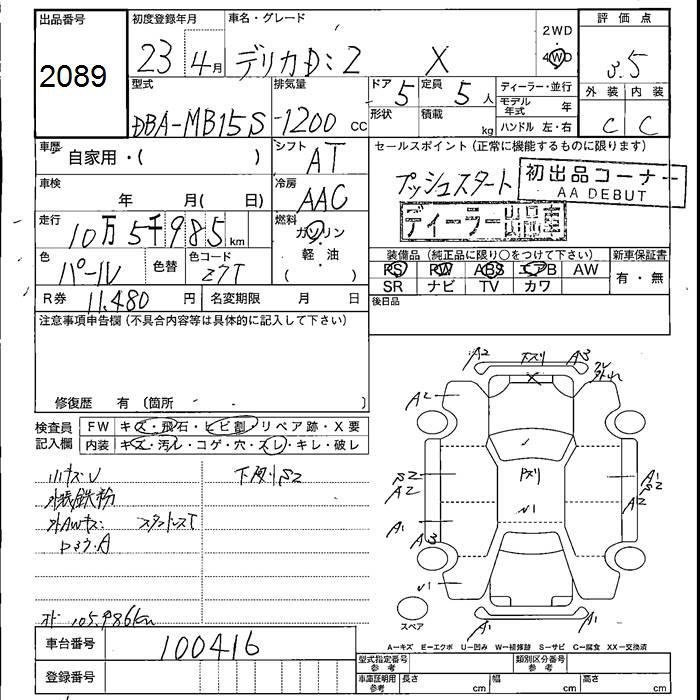 出品番号 初度登録年月 車名・グレード 評価点
2089 23 4月 デリカD:2 X 2WD 4WD 3.5
外装 内装
C C
型式 排気量 ドア 定員 ディーラー・並行
DBA-MB15S -1200 cc 5 5人 モデル年式 年
形状 積載 kg ハンドル 左・右
車歴 自家用・( ) シフト AT セールスポイント(正常に機能するものに限ります)
プッシュスタート 初出品コーナー
AA DEBUT
車検 年 月( 日) 冷房 AAC
ディーラー
走行 10万5千985km 燃料 ガソリン
軽・油
( )
色 パール 色替 色コード Z7T
装備品(純正品に限り○をつけて下さい) 新車保証書
PS PW ABS エアB AW 有・無
SR ナビ TV カワ
R券 11,480円 名変期限 月 日 後日品
注意事項申告欄(不具合内容等は具体的に記入して下さい)
修復歴 有〔箇所 〕
検査員記入欄 FW キズ・飛石・ヒビ割・リペア跡・X要
内装 キズ・汚れ・コゲ・穴・スレ・キレ・破レ
小キズ・U 下廻りS2
外装鉄粉
外AWキズ
105,986km
車台番号 100416
登録番号
A2 A3
A2
S2 A2
A1
A3
U1
A1 S2
A2
A1 A1
スペア
A-キズ E-エクボ U-凹み W-補修跡 S-サビ C-腐食 XX-交換済
型式指定番号 参考 類別区分番号 参考
車庫証明用 参考 長さ cm 幅 cm 高さ cm